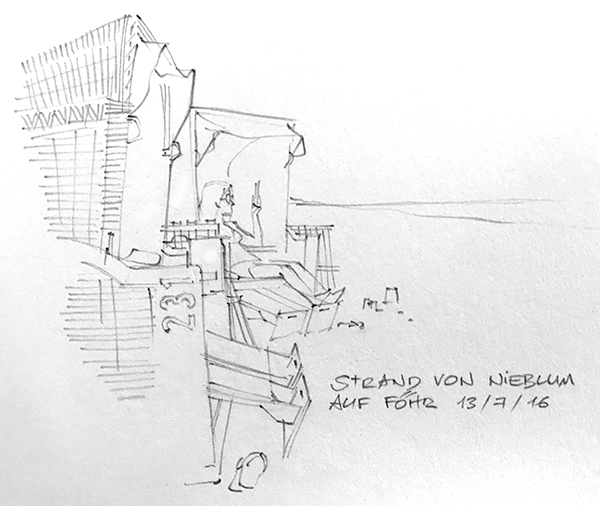 231
STRAND VON NIEBLUM
AUF FÖHR 13/7/16